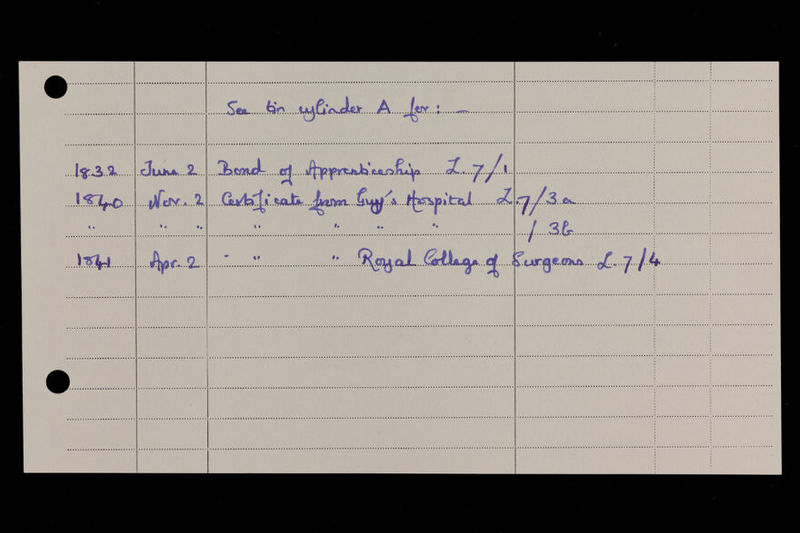 See tin cylinder A for: —
1832 June 2 Bond of Apprenticeship L. 7/1
1840 Nov. 2 Certificate from Guy's Hospital L.7/3a
" " " " " " " / 3b
1841 Apr. 2 " " " Royal College of Surgeons L. 7/4